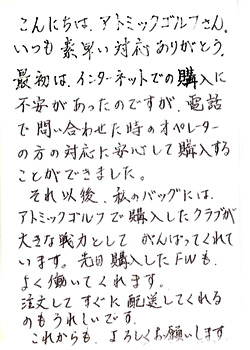 こんにちは、アトミックゴルフさん。
いつも素早い対応ありがとう。
最初は、インターネットでの購入に
不安があったのですが、電話
で問い合わせた時のオペレーター
の方の対応に安心して購入する
ことができました。
それ以後、私のバッグには、
アトミックゴルフで購入したクラブが
大きな戦力として がんばってくれて
います。先日購入したFWも、
よく働いてくれます。
注文してすぐに配送してくれる
のもうれしいです。
これからも、よろしくお願いします。